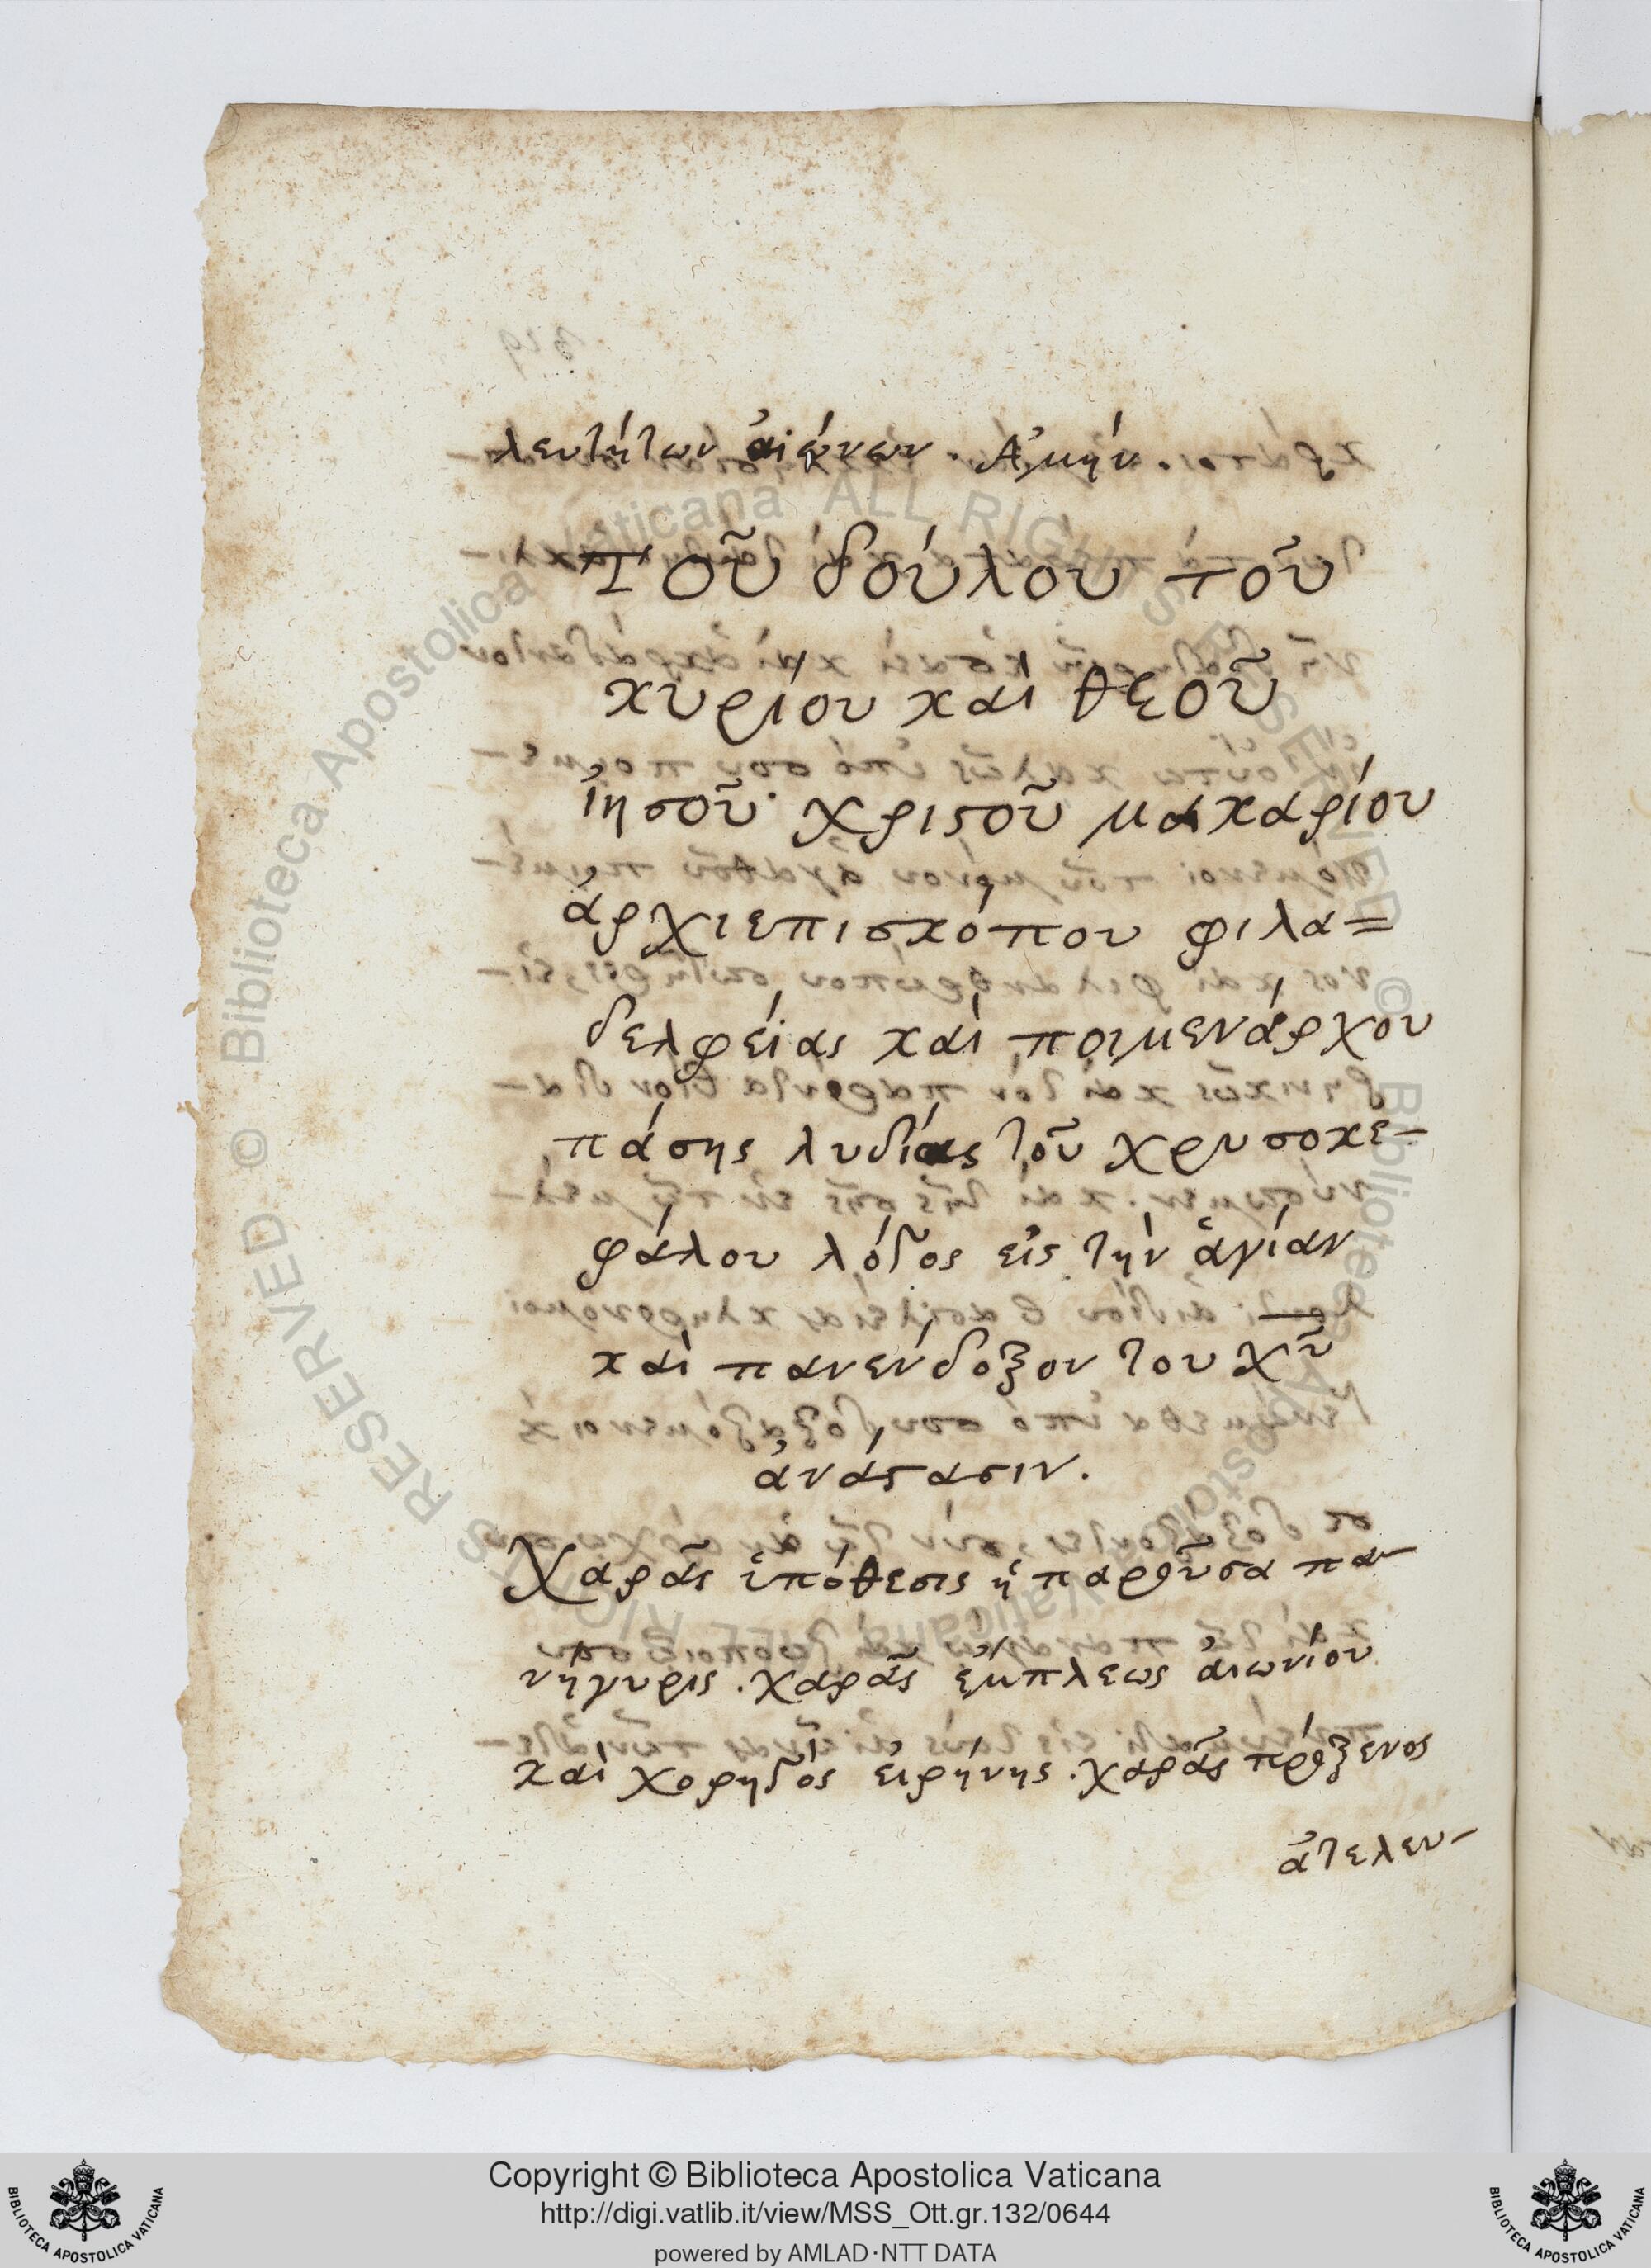 λευτήτων αἰώνων. Ἀμήν.
Τοῦ δούλου τοῦ
κυρίου καὶ θεοῦ
ἰησοῦ χριϛοῦ μακαρίου
ἀρχιεπισκόπου φιλα=
δελφείας καὶ ποιμενάρχου
πάσης λυδίας τοῦ χρυσοκε-
φάλου λόγος εἰς τὴν ἁγίαν
καὶ πανένδοξον του χῦ
ἀνάϛασιν.
Χαρᾶς ὑπόθεσις ἡ παροῦσα πα-
νήγυρις. χαρᾶς ἔμπλεως αἰωνίου
καὶ χορηγὸς εἰρήνης. χαρᾶς πρόξενος
ἀτελευ-
Copyright © Biblioteca Apostolica Vaticana
http://digi.vatlib.it/view/MSS_Ott.gr.132/0644
powered by AMLAD·NTT DATA
BIBLIOTECA APOSTOLICA VATICANA
BIBLIOTECA APOSTOLICA VATICANA